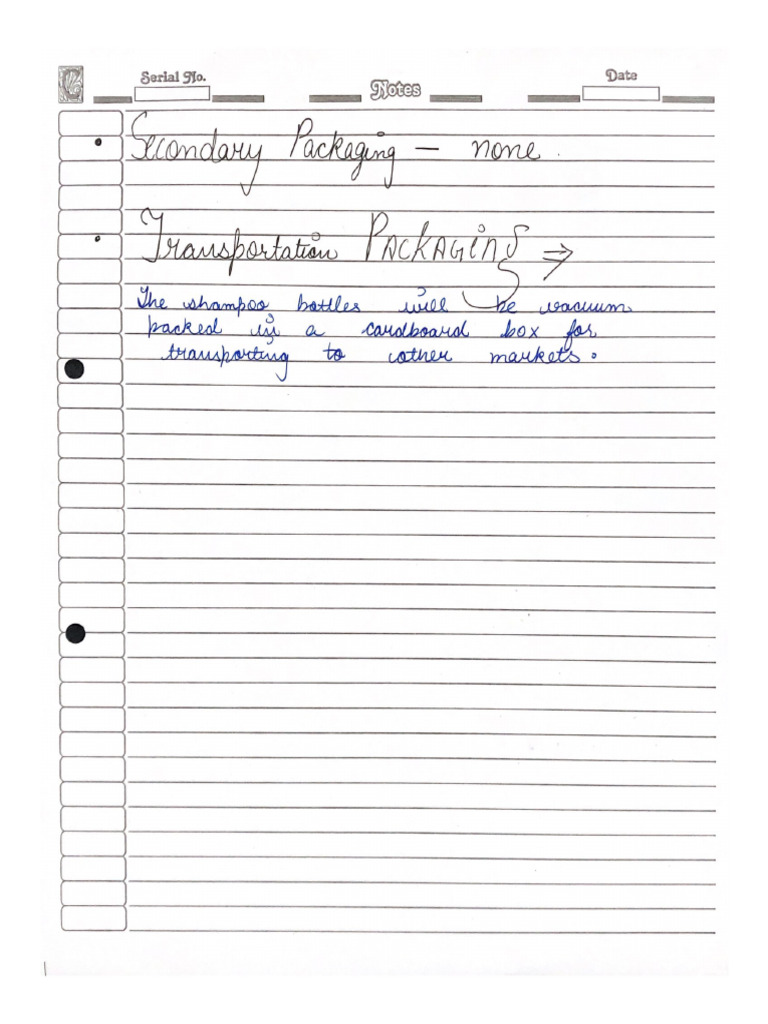 Serial No.
Notes
Date
• Secondary Packaging — none.
• Transportation PACKAGING ⇒
The shampoo bottles will be vacuum
packed in a cardboard box for
transporting to other markets.